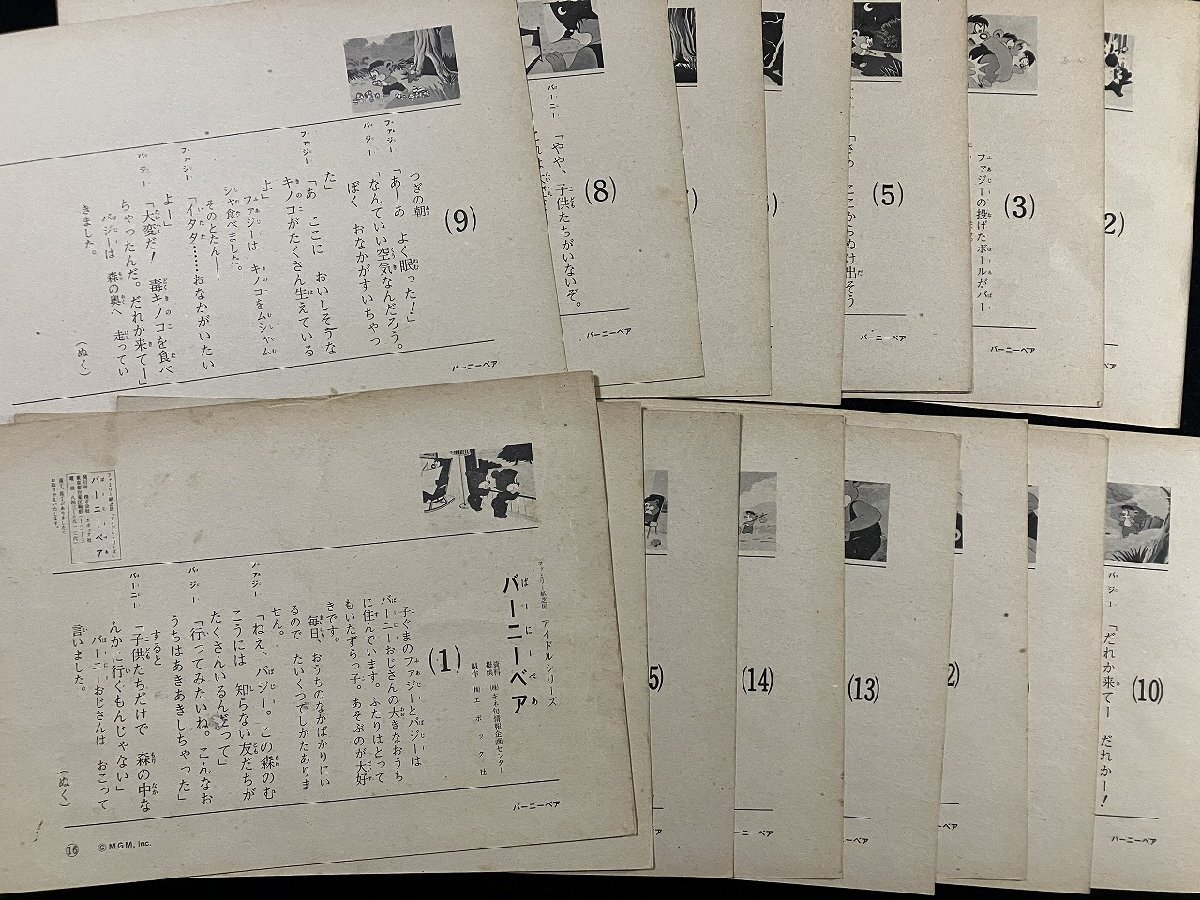 (9)
つぎの朝
ファジー「あーあ よく眠った！」
バジー「なんていい空気なんだろう。
ぼく おなかがすいちゃっ
た」
ファジー「あ ここに おいしそうな
キノコがたくさん生えている
よ」
ファジーは キノコをムシャム
シャ食べました。
そのとたん——
ファジー「イタタ……おなかがいたい
よー」
バジー「大変だ！ 毒キノコを食べ
ちゃったんだ。だれか来てー」
バジーは 森の奥へ 走ってい
きました。
(ぬく)
バーニーベア
(8)
バーニー「やや、子供たちがいないぞ。
バーニーベア
バーニーベア
(5)
ここからぬけ出そう
バーニーベア
(3)
ファジーの投げたボールがバー
バーニーベア
2)
ベア
ファミリー紙芝居 アイドルシリーズ
バーニーベア
資料 ㈱キネ旬情報企画センター
製作 ㈱エポック社
(1)
子ぐまのファジーとバジーは
バーニーおじさんの大きなおうち
に住んでいます。ふたりはとって
もいたずらっ子。あそぶのが大好
きです。
毎日、おうちのなかばかりにい
るので たいくつでしかたありま
せん。
ファジー「ねえ、バジー。この森のむ
こうには 知らない友だちが
たくさんいるんだって」
バジー「行ってみたいね。こんなお
うちはあきあきしちゃった」
すると
バーニー「子供たちだけで 森の中な
んかに行くもんじゃない」
バーニーおじさんは おこって
言いました。
(ぬく)
バーニーベア
⑯ ©MGM, Inc.
バーニーベア
5)
ーベア
(14)
バーニーベア
(13)
バーニーベア
2)
ーベア
(10)
バジー「だれか来てー だれかー！
バーニーベア